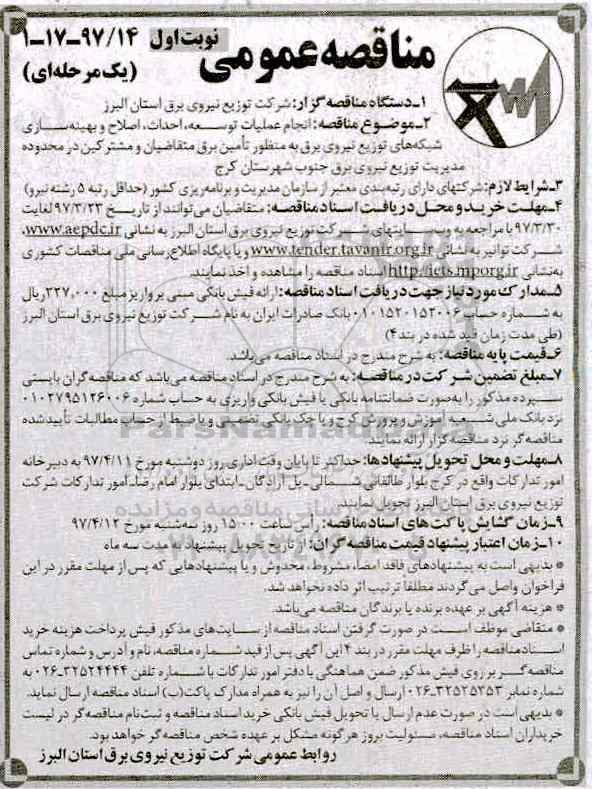 نوبت اول ۹۷/۱۴-۱۷-۱
مناقصه عمومی
(یک مرحله‌ای)
۱-دستگاه مناقصه گزار: شرکت توزیع نیروی برق استان البرز
۲-موضوع مناقصه: انجام عملیات توسعه، احداث، اصلاح و بهینه‌سازی
شبکه‌های توزیع نیروی برق به منظور تأمین برق متقاضیان و مشترکین در محدوده
مدیریت توزیع نیروی برق جنوب شهرستان کرج
۳-شرایط لازم: شرکتهای دارای رتبه‌بندی معتبر از سازمان مدیریت و برنامه‌ریزی کشور (حداقل رتبه ۵ رشته نیرو)
۴-مهلت خرید و محل دریافت اسناد مناقصه: متقاضیان می‌توانند از تاریخ ۹۷/۳/۲۳ لغایت
۹۷/۳/۳۰ با مراجعه به وب سایتهای شرکت توزیع نیروی برق استان البرز به نشانی www.aepdc.ir،
شرکت توانیر به نشانی www.tender.tavanir.org.ir و یا پایگاه اطلاع‌رسانی ملی مناقصات کشوری
به نشانی http://iets.mporg.ir اسناد مناقصه را مشاهده و اخذ نمایند.
۵-مدارک مورد نیاز جهت دریافت اسناد مناقصه: ارائه فیش بانکی مبنی بر واریز مبلغ ۳۲۷,۰۰۰ ریال
به شماره حساب ۰۱۰۱۵۲۰۱۵۳۰۰۶ بانک صادرات ایران به نام شرکت توزیع نیروی برق استان البرز
(طی مدت زمان قید شده در بند ۴)
۶-قیمت پایه مناقصه: به شرح مندرج در اسناد مناقصه می‌باشد.
۷-مبلغ تضمین شرکت در مناقصه: به شرح مندرج در اسناد مناقصه می‌باشد که مناقصه گران بایستی
سپرده مذکور را به‌صورت ضمانتنامه بانکی یا فیش بانکی واریزی به حساب شماره ۰۱۰۲۷۹۵۱۲۶۰۰۶
نزد بانک ملی شعبه آموزش و پرورش کرج و یا چک بانکی تضمینی و یا ضبط از حساب مطالبات تأیید شده
مناقصه گر نزد مناقصه گزار ارائه نمایند.
۸-مهلت و محل تحویل پیشنهادها: حداکثر تا پایان وقت اداری روز دوشنبه مورخ ۹۷/۴/۱۱ به دبیرخانه
امور تدارکات واقع در کرج بلوار طالقانی شمالی-پل آزادگان-ابتدای بلوار امام رضا-امور تدارکات شرکت
توزیع نیروی برق استان البرز تحویل نمایند.
۹-زمان گشایش پاکت های اسناد مناقصه: رأس ساعت ۱۵:۰۰ روز سه‌شنبه مورخ ۹۷/۴/۱۲
۱۰-زمان اعتبار پیشنهاد قیمت مناقصه گران: از تاریخ تحویل پیشنهاد تا مدت سه ماه
* بدیهی است به پیشنهادهای فاقد امضاء، مشروط، مخدوش و یا پیشنهادهایی که پس از مهلت مقرر در این
فراخوان واصل می گردند مطلقا ترتیب اثر داده نخواهد شد.
* هزینه آگهی بر عهده برنده یا برندگان مناقصه می‌باشد.
* متقاضی موظف است در صورت گرفتن اسناد مناقصه از سایت‌های مذکور فیش پرداخت هزینه خرید
اسناد مناقصه را ظرف مهلت مقرر در بند ۴ این آگهی پس از قید شماره مناقصه، نام و آدرس و شماره تماس
مناقصه گر بر روی فیش مذکور ضمن هماهنگی با دفتر امور تدارکات با شماره تلفن ۳۲۵۲۴۴۴۴-۰۲۶ به
شماره نمابر ۳۲۵۲۵۳۵۳-۰۲۶ ارسال و اصل آن را نیز به همراه مدارک پاکت (ب) اسناد مناقصه ارسال نماید.
* بدیهی است در صورت عدم ارسال یا تحویل فیش بانکی خرید اسناد مناقصه و ثبت‌نام مناقصه گر در لیست
خریداران اسناد مناقصه، مسئولیت بروز هرگونه مشکل بر عهده شخص مناقصه گر خواهد بود.
روابط عمومی شرکت توزیع نیروی برق استان البرز